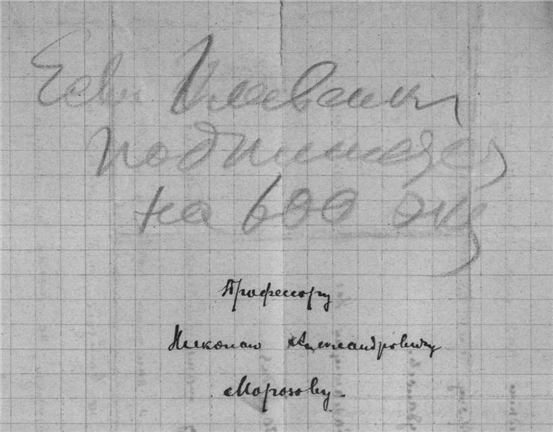 Если Главнаука
подпишется
на 600 экз
Профессору
Николаю Александровичу
Морозову.